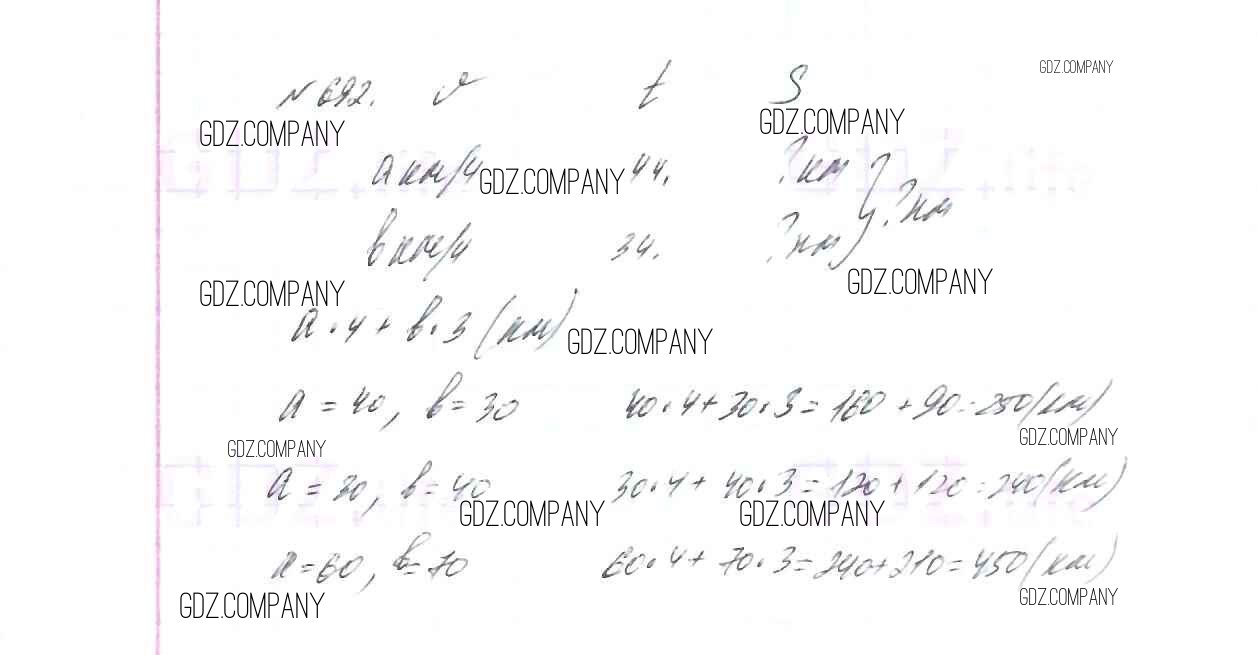 GDZ.COMPANY
№ 692. v t S
GDZ.COMPANY GDZ.COMPANY
a км/ч GDZ.COMPANY 4ч. ? км
? км
b км/ч 3ч. ? км
GDZ.COMPANY GDZ.COMPANY
a · 4 + b · 3 (км) GDZ.COMPANY
a = 40, b = 30 40 · 4 + 30 · 3 = 160 + 90 = 250 (км)
GDZ.COMPANY GDZ.COMPANY
a = 30, b = 40 30 · 4 + 40 · 3 = 120 + 120 = 240 (км)
GDZ.COMPANY GDZ.COMPANY
a = 60, b = 70 60 · 4 + 70 · 3 = 240 + 210 = 450 (км)
GDZ.COMPANY GDZ.COMPANY